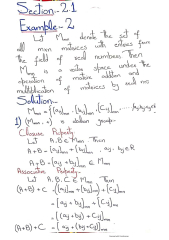 Section-2.1
Example-2
Let Mmn denote the set of
all mxn matrices with entries from
the field of real numbers then
Mmn is a vector space under the
operation of matrix addition and
multiplication of matrices by
Solution-
Mmn = {[aij]mn, [bij]mn, [cij]mn, ...
1) (Mmn, +) is abelian group-
Closure Property-
Let A, B ∈ Mmn Then
A+B = [aij]mn + [bij]mn
A+B = [aij + bij] ∈ Mmn
Associative Property-
Let A, B, C ∈ Mmn Then
(A+B) + C = ([aij]mn + [bij]mn) + [cij]mn
= [aij + bij]mn + [cij]mn
= [(aij + bij) + cij]mn
(A+B) + C = [aij + (bij + cij)]mn